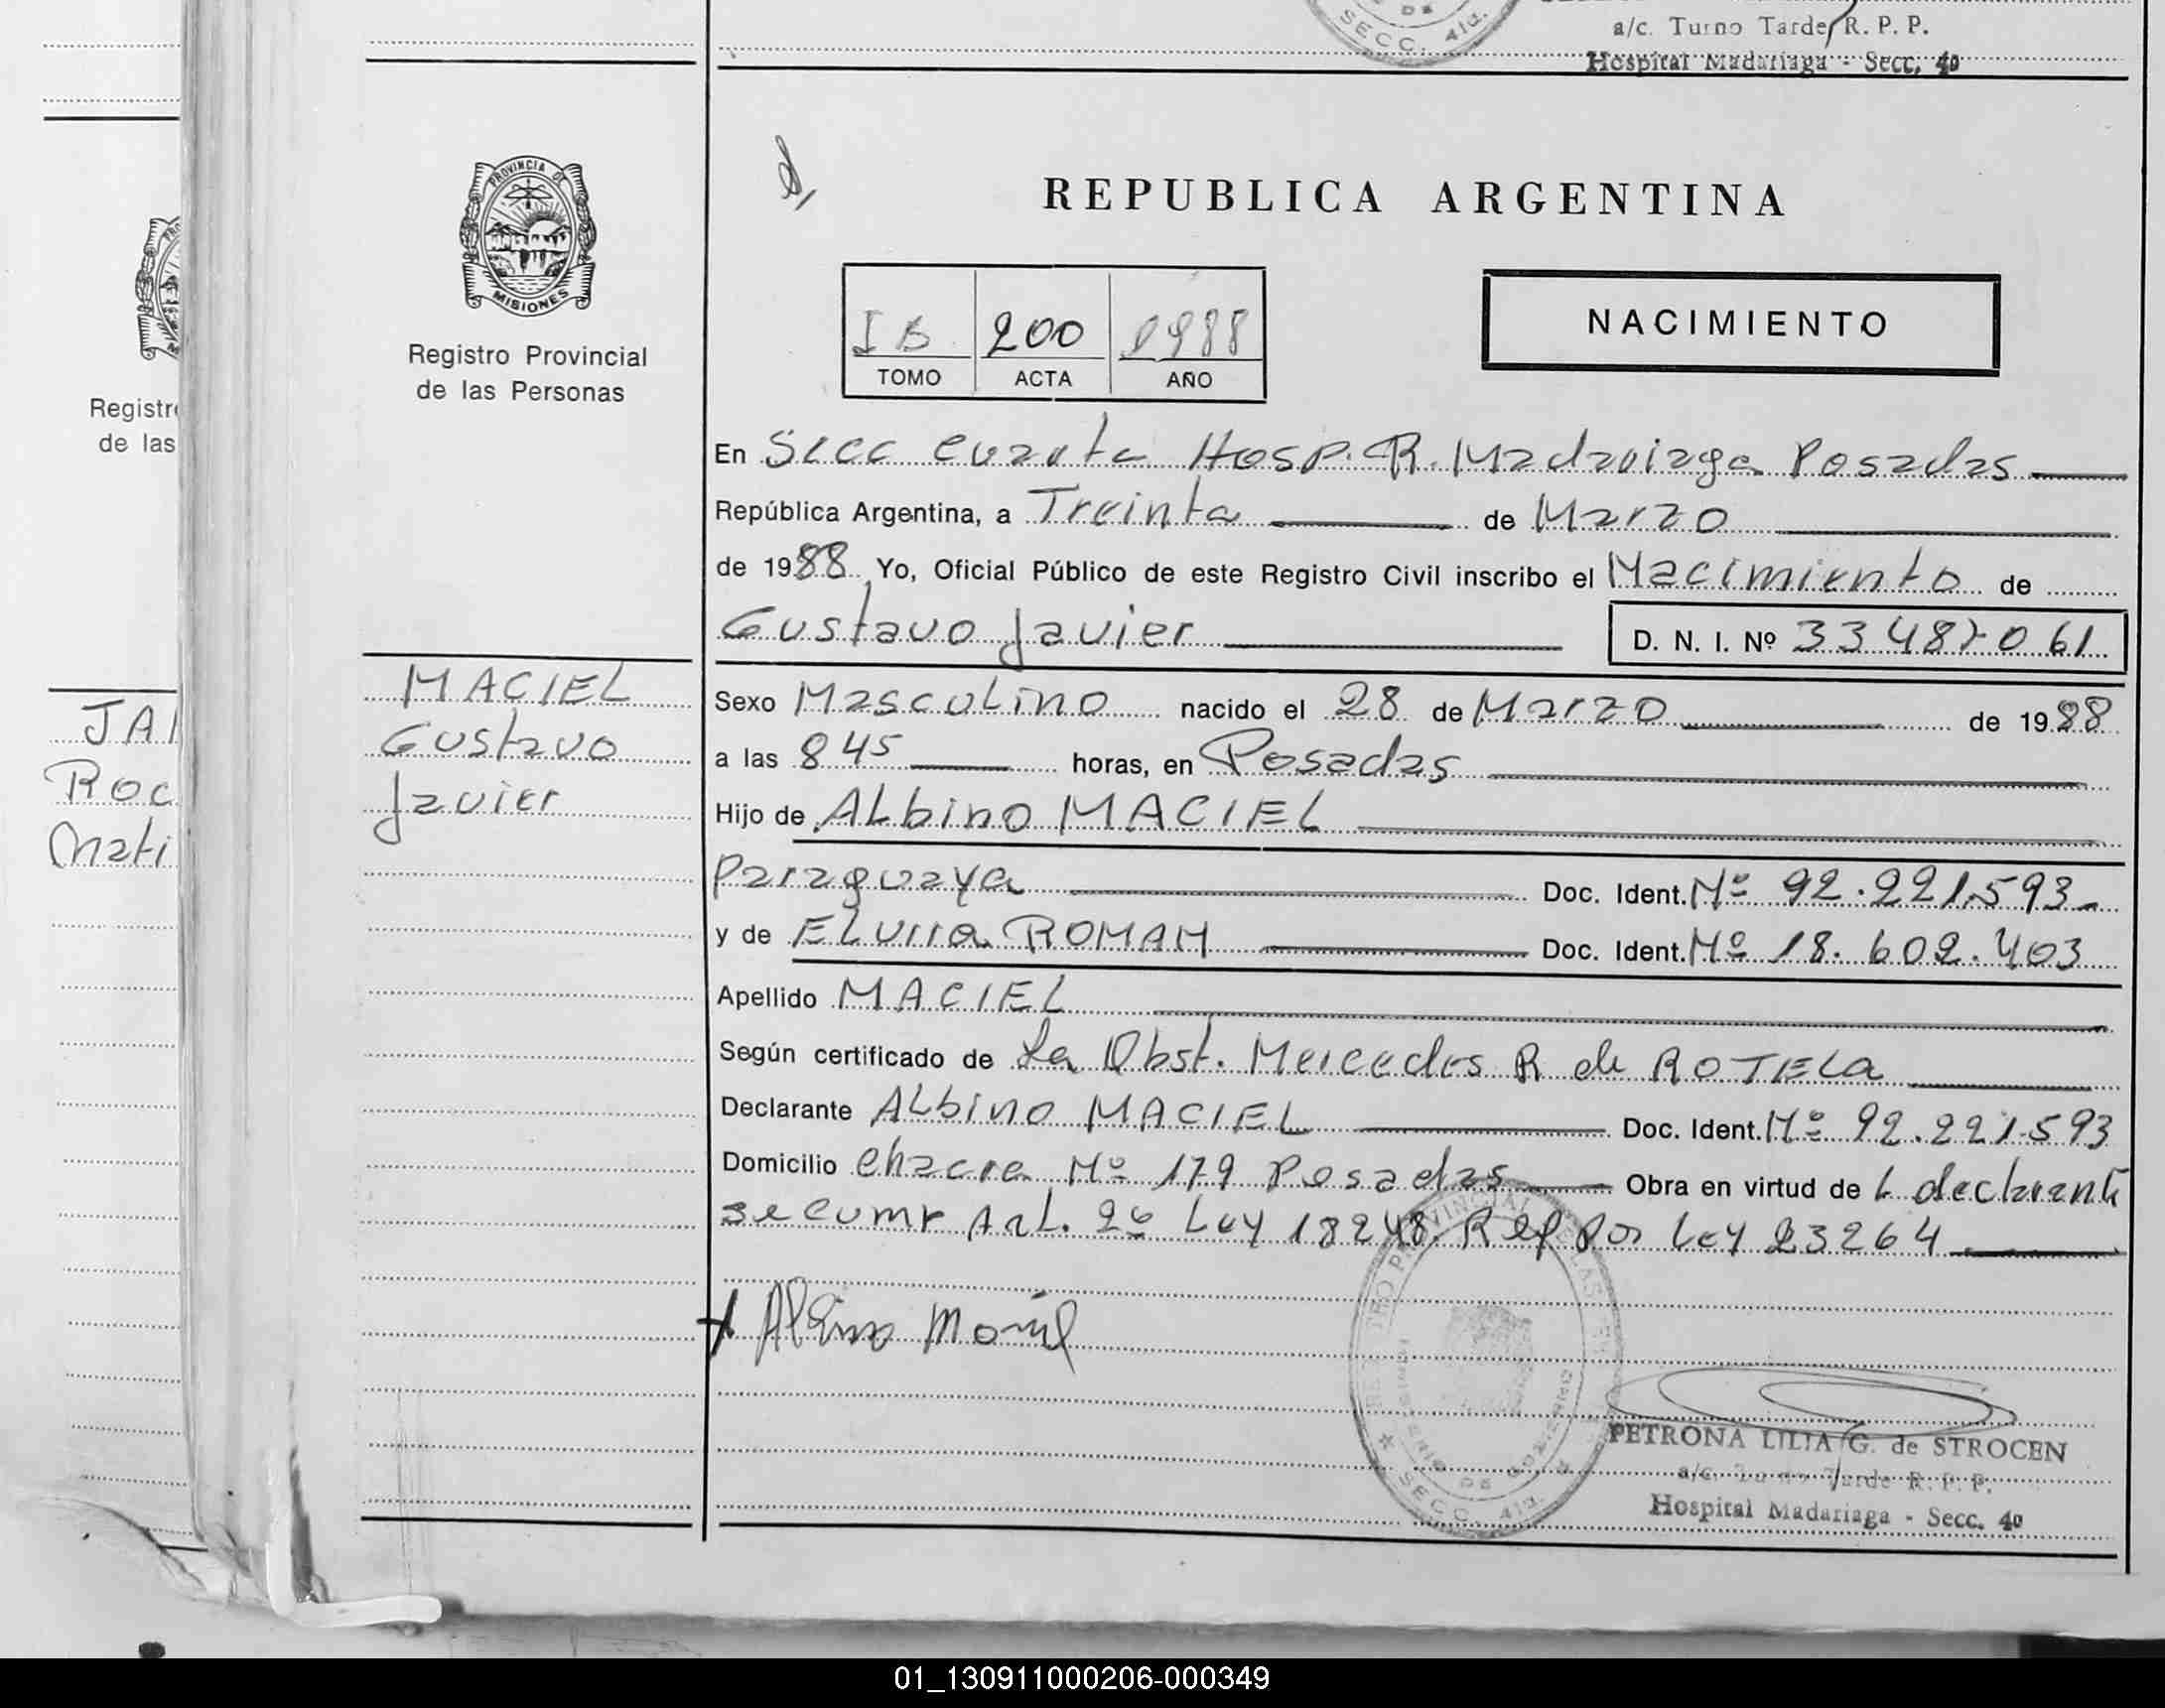 DE
SECC. 4ta.
a/c. Turno Tarde R. P. P.
Hospital Madariaga - Secc. 4a
PROVINCIA DE
MISIONES
Registro Provincial
de las Personas
REPUBLICA ARGENTINA
I B 200 1988
TOMO ACTA AÑO
NACIMIENTO
Registr
de las
En Secc cuarta Hosp. R. Madariaga Posadas
República Argentina, a Treinta de Marzo
de 1988 Yo, Oficial Público de este Registro Civil inscribo el Nacimiento de
Gustavo Javier
D. N. I. Nº 33487061
MACIEL
Gustavo
Javier
JA
Roc
Mati
Sexo Masculino nacido el 28 de Marzo de 1988
a las 8 45 horas, en Posadas
Hijo de Albino MACIEL
Paraguaya Doc. Ident. Nº 92.221.593
y de Elvira ROMAN Doc. Ident. Nº 18.602.403
Apellido MACIEL
Según certificado de La Obst. Mercedes R de ROTELA
Declarante Albino MACIEL Doc. Ident. Nº 92.221.593
Domicilio Chacra Nº 179 Posadas Obra en virtud de L declarante
se cump Art. 26 Ley 18248. Ref por Ley 23264
Albino Maciel
PETRONA LILIA G. de STROCEN
a/c. Turno Tarde R. P. P.
Hospital Madariaga - Secc. 4a
SECC. 4ta.
01_130911000206-000349